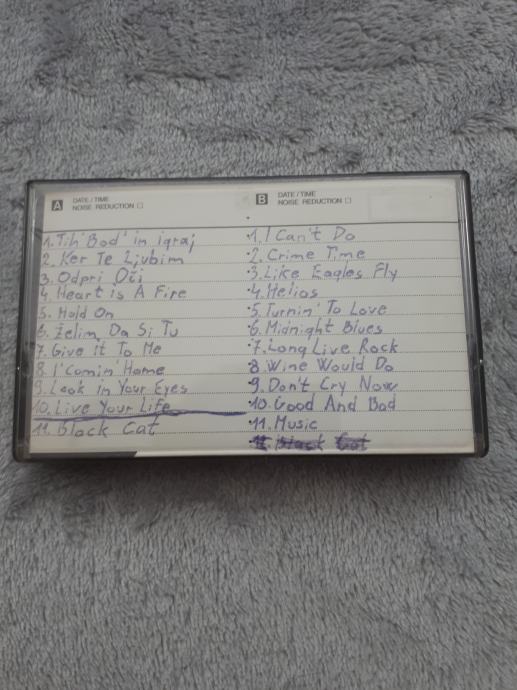 A DATE / TIME
NOISE REDUCTION
1. Tih' Bod' in igraj
2. Ker Te Ljubim
3. Odpri Oči
4. Heart is A Fire
5. Hold On
6. Želim Da Si Tu
7. Give It To Me
8. I'Comin' Home
9. Look in Your Eyes
10. Live Your Life
11. Black Cat
B DATE / TIME
NOISE REDUCTION
1. I Can't Do
2. Crime Time
3. Like Eagles Fly
4. Helios
5. Turnin' To Love
6. Midnight Blues
7. Long Live Rock
8. Wine Would Do
9. Don't Cry Now
10. Good And Bad
11. Music
12. Black Cat